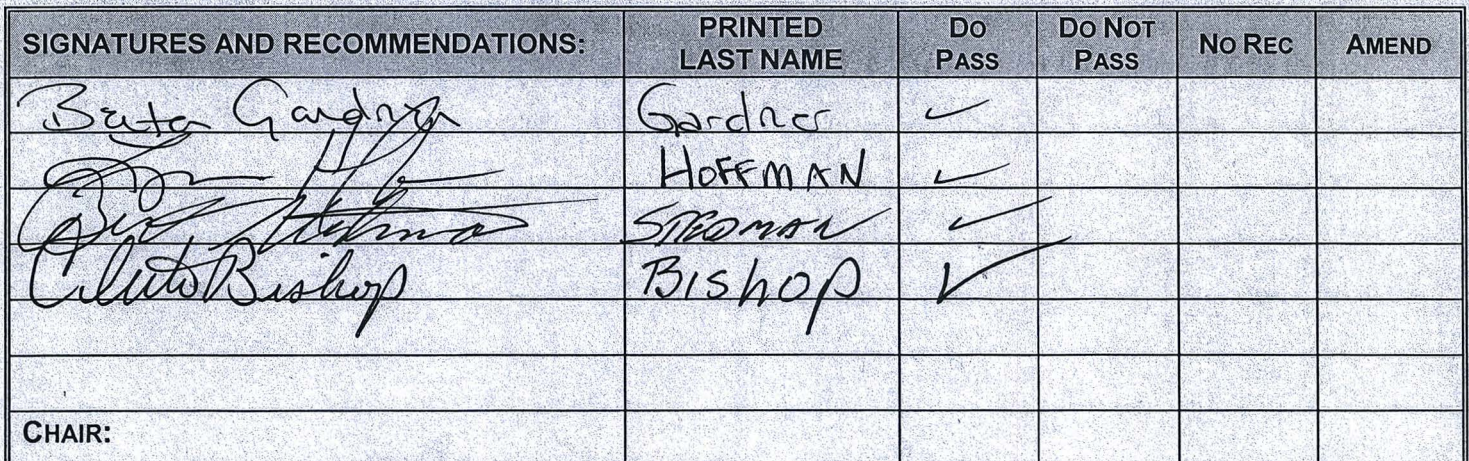 SIGNATURES AND RECOMMENDATIONS: PRINTED LAST NAME DO PASS DO NOT PASS NO REC AMEND
Berta Gardner Gardner ✓
HOFFMAN ✓
Bert Stedman STEDMAN ✓
Click Bishop BISHOP ✓
CHAIR: